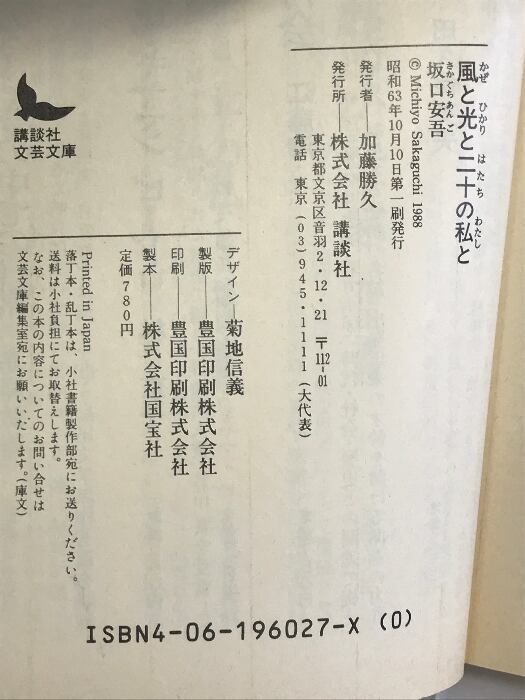 風と光と二十の私と
かぜ ひかり はたち わたし
坂口安吾
さかぐちあんご
© Michiyo Sakaguchi 1988
昭和63年10月10日第一刷発行
発行者――加藤勝久
発行所――株式会社 講談社
東京都文京区音羽2・12・21 〒112-01
電話 東京(03)945・1111(大代表)
デザイン――菊地信義
製版――豊国印刷株式会社
印刷――豊国印刷株式会社
製本――株式会社国宝社
定価780円
Printed in Japan
落丁本・乱丁本は、小社書籍製作部宛にお送りください。
送料は小社負担にてお取替えします。
なお、この本の内容についてのお問い合せは
文芸文庫編集室宛にお願いいたします。(庫文)
講談社
文芸文庫
ISBN4-06-196027-X (0)